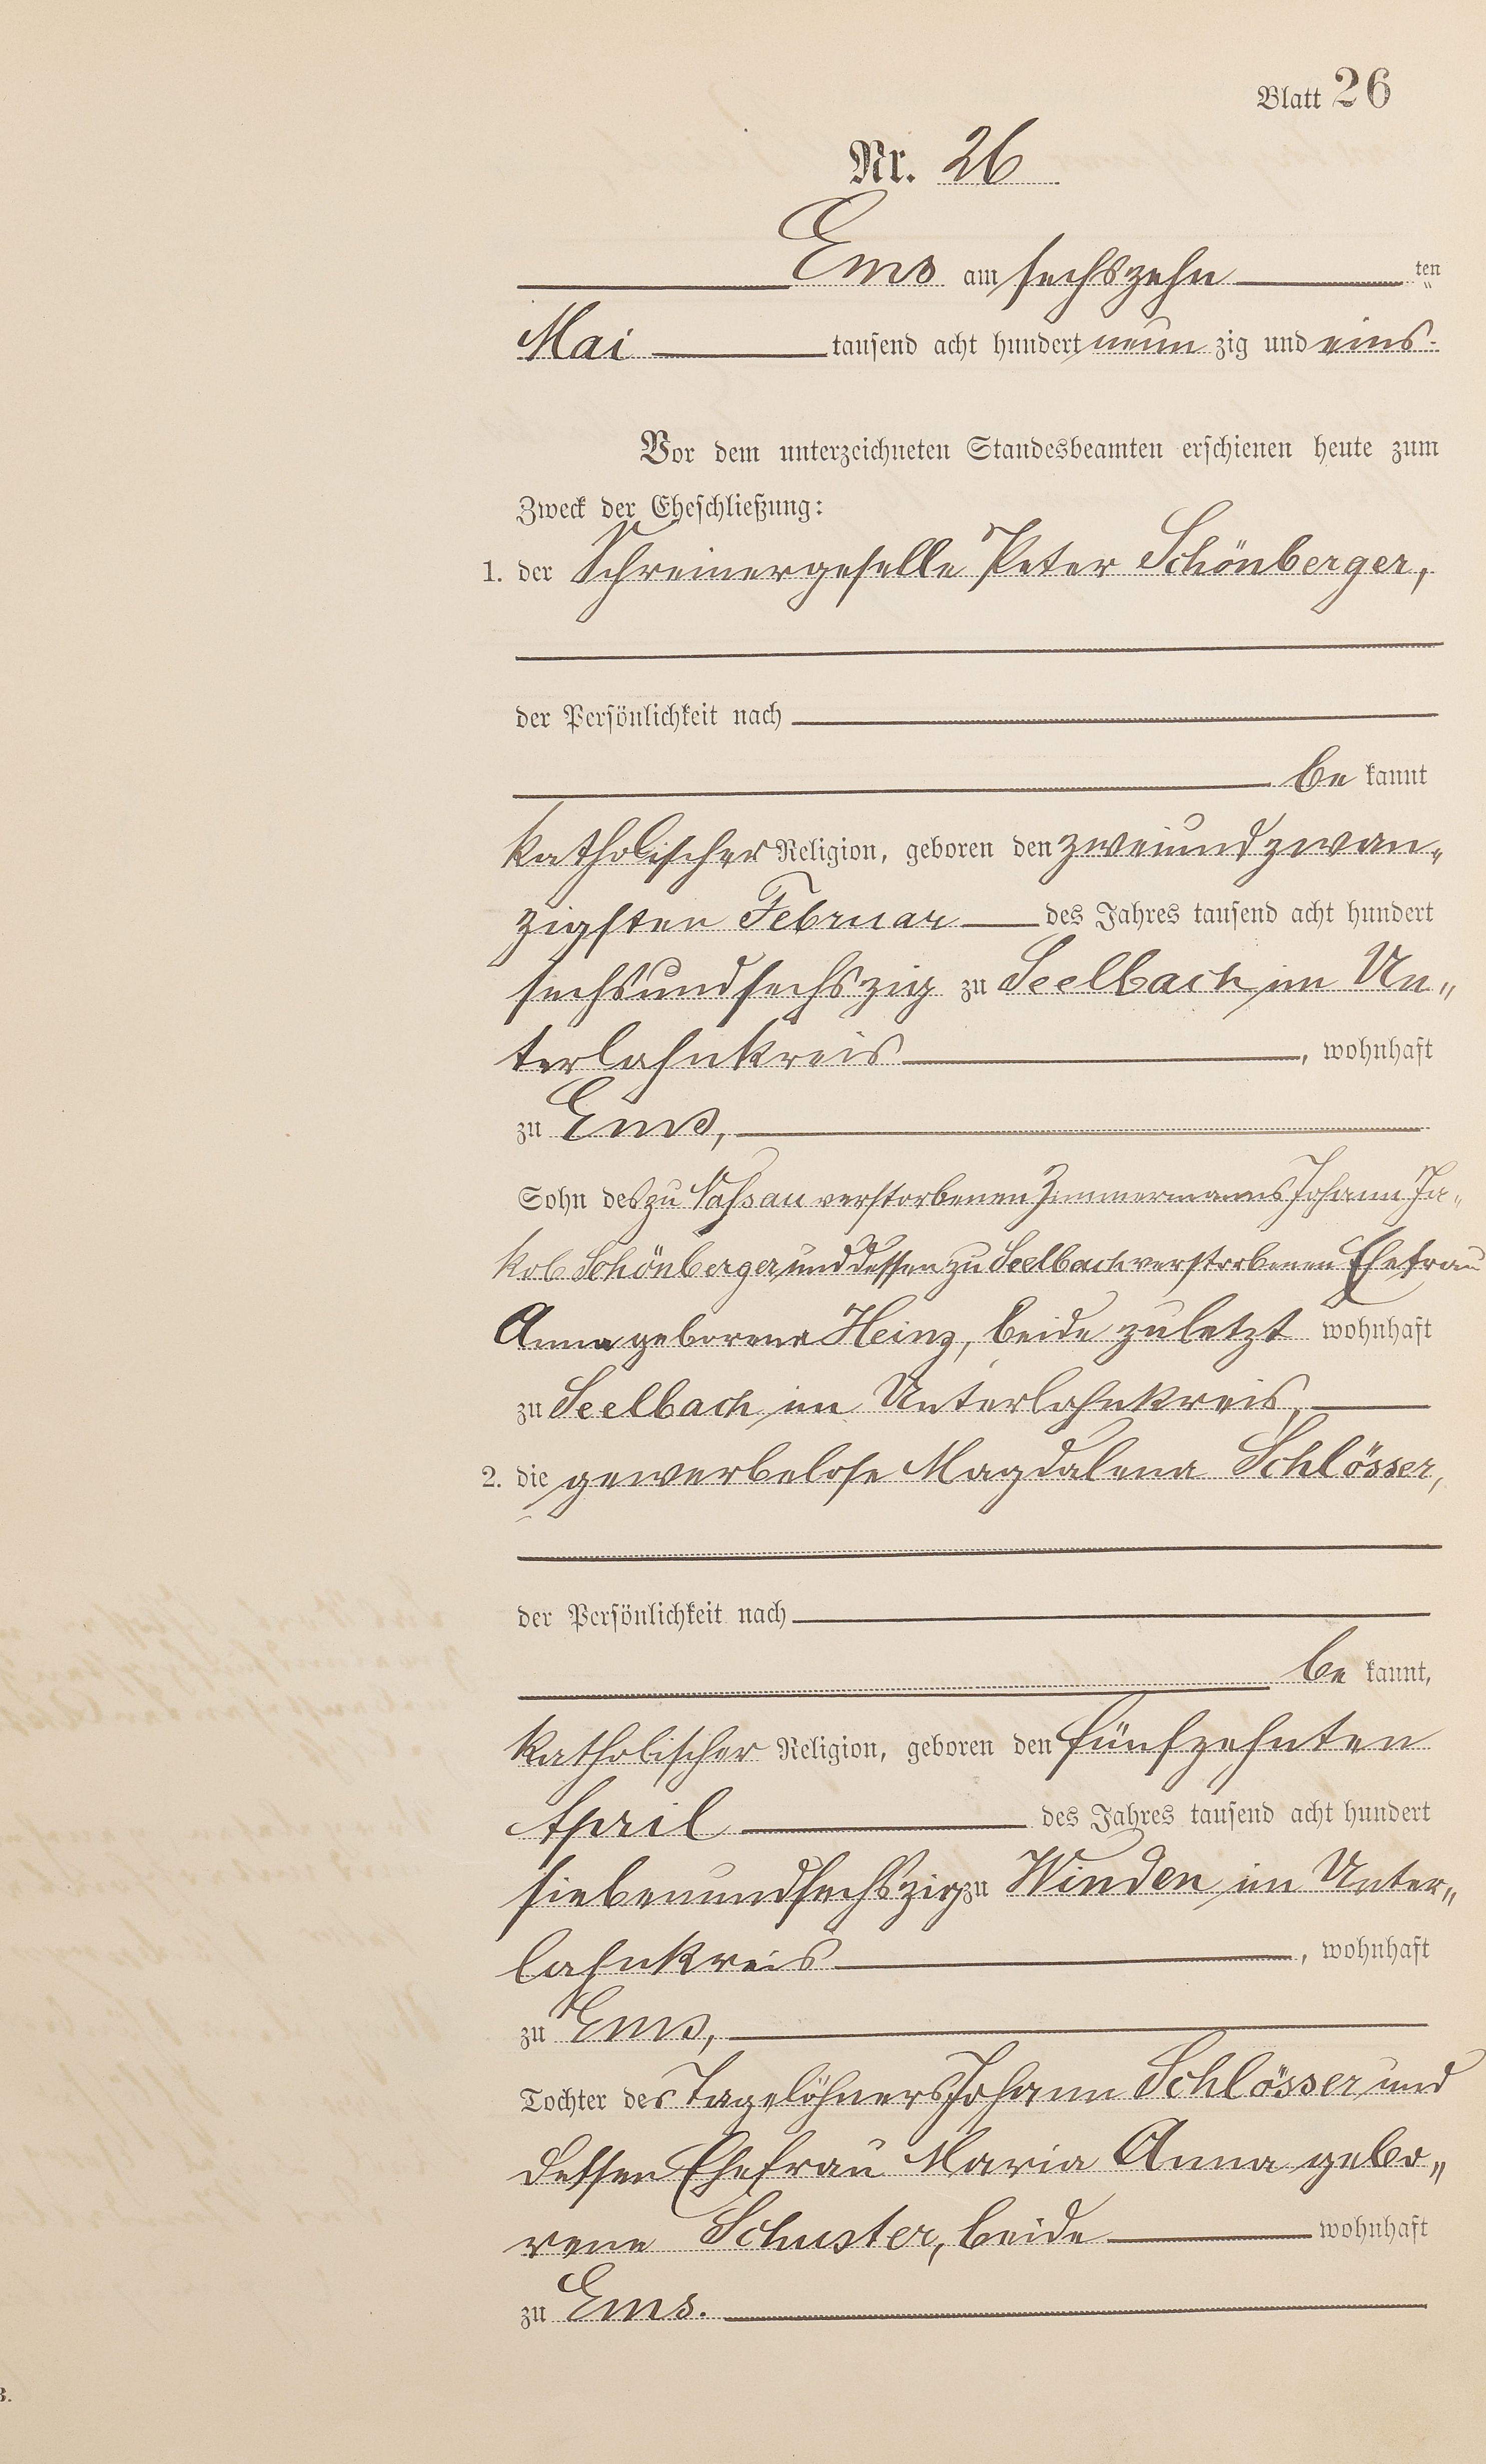 Blatt 26
Nr. 26
Ems am sechszehn ten
Mai tausend acht hundert neun zig und eins.
Vor dem unterzeichneten Standesbeamten erschienen heute zum
Zweck der Eheschließung:
1. der Schreinergeselle Peter Schönberger,
der Persönlichkeit nach
be kannt
katholischer Religion, geboren den zweiundzwan„
zigsten Februar des Jahres tausend acht hundert
sechsundsechszig zu Seelbach im Un„
terlahnkreis, wohnhaft
zu Ems,
Sohn des zu Nassau verstorbenen Zimmermanns Johann Ja„
kob Schönberger und dessen zu Seelbach verstorbenen Ehefrau
Anna geborene Heinz, beide zuletzt wohnhaft
zu Seelbach im Unterlahnkreis,
2. die gewerbelose Magdalena Schlösser,
der Persönlichkeit nach
be kannt,
katholischer Religion, geboren den fünfzehnten
April des Jahres tausend acht hundert
siebenundsechszig zu Winden im Unter„
lahnkreis, wohnhaft
zu Ems,
Tochter des Tagelöhners Johann Schlösser und
dessen Ehefrau Maria Anna gebo„
rene Schuster, beide wohnhaft
zu Ems.